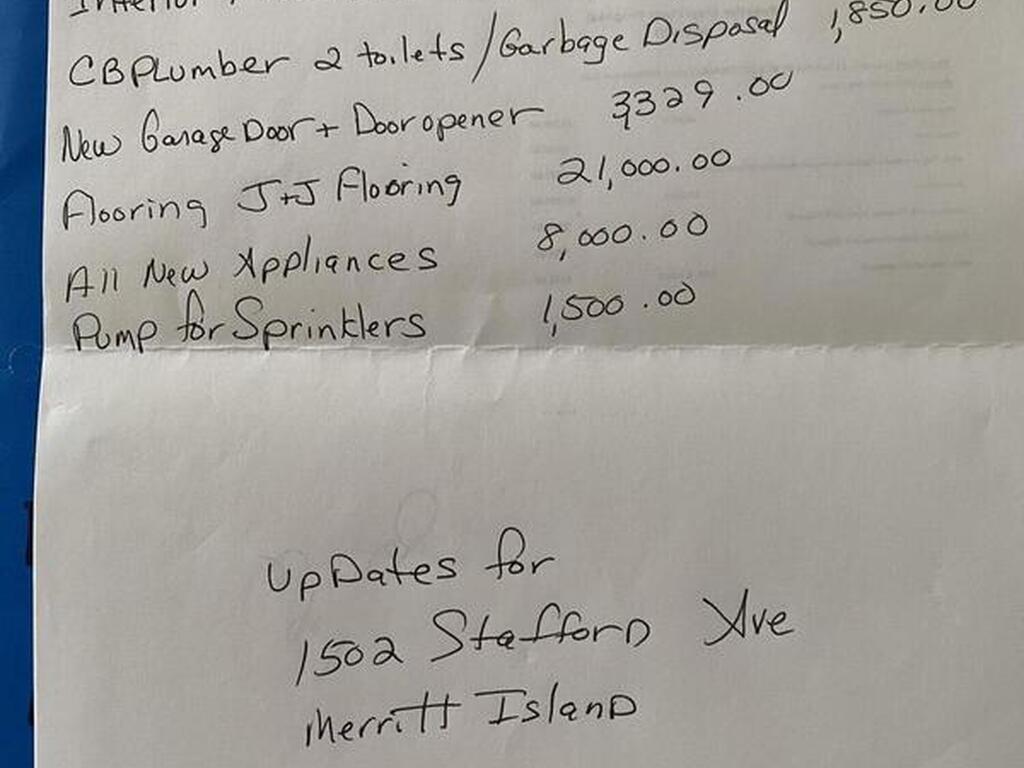 Interior
CBPlumber 2 toilets/Garbage Disposal 1,850.00
New Garage Door + Door opener 3,329.00
Flooring J+J Flooring 21,000.00
All New Appliances 8,000.00
Pump for Sprinklers 1,500.00
UpDates for
1502 Stafford Ave
Merritt Island